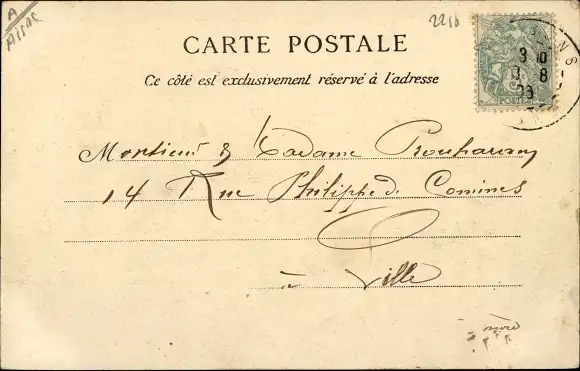 A
Aisne
2218
CARTE POSTALE
Ce côté est exclusivement réservé à l'adresse
3 10
8
POSTES
Monsieur & Madame
14 Rue Philippe de Comines
à Ville
nord